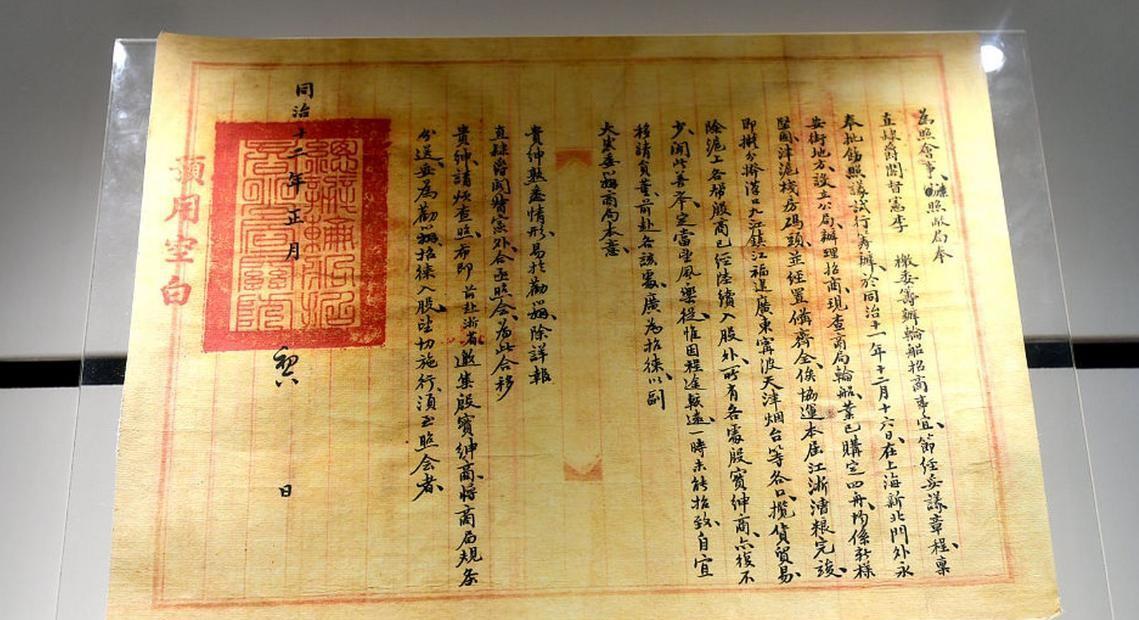 為照會事、照得敝局奉
直隸爵閣督憲李 檄委籌辦輪船招商事宜、節經妥議章程、稟
奉批飭照議試行、籌辦、於同治十一年十二月十六日、在上海新北門外永
安街地方、設立公局、辦理招商、現查商局輪船、業已購定四舟、均係新樣
堅固、津滬棧房碼頭、並經置備齊全、俟協運本屆江浙漕糧完竣、
即擬分赴漢口九江鎮江福建廣東甯波天津烟台等各口、攬貨貿易、
除滬上各幫股商已經陸續入股外、所有各處殷實紳商、亦復不
少、聞此善舉、定當望風樂從、惟因程途較遠、一時未能招致、自宜
移請貴董、前赴各該處、廣為招徠、以副
大憲委辦商局本意、
貴紳熟悉情形、易於勸辦、除詳報
直隸爵閣督憲外、合亟照會、為此合移
貴紳、請煩查照、希即前赴浙省、邀集殷實紳商、將商局規條
分送、妥為勸辦、招徠入股、望切施行、須至照會者、
同治十二年正月 日
總辦輪船招
商公局關防
預用空白